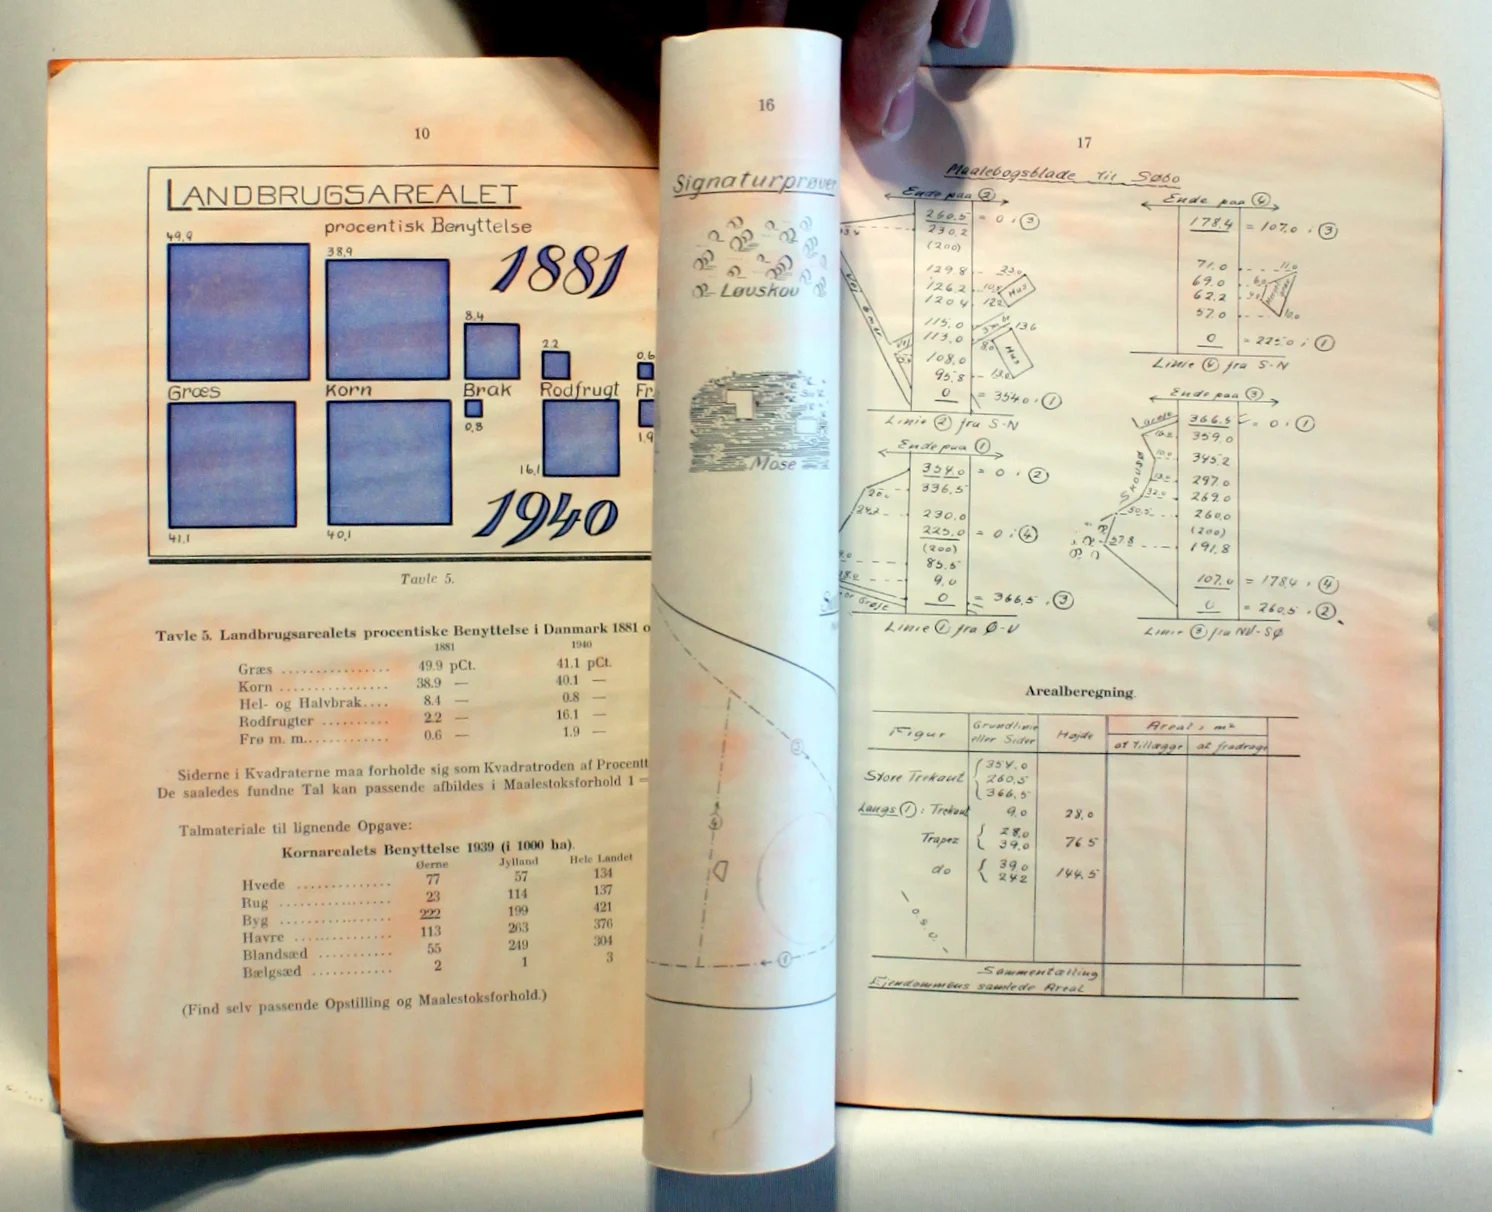 10
LANDBRUGSAREALET
procentisk Benyttelse
49,9
38,9
1881
8,4
2,2
0,6
Græs
Korn
Brak
Rodfrugt
0,8
1,9
16,1
41,1
40,1
1940
Tavle 5.
Tavle 5. Landbrugsarealets procentiske Benyttelse i Danmark 1881 o
1881 1940
Græs ................ 49.9 pCt. 41.1 pCt.
Korn ................ 38.9 — 40.1 —
Hel- og Halvbrak.... 8.4 — 0.8 —
Rodfrugter .......... 2.2 — 16.1 —
Frø m. m............. 0.6 — 1.9 —
Siderne i Kvadraterne maa forholde sig som Kvadratroden af Procentt
De saaledes fundne Tal kan passende afbildes i Maalestoksforhold 1 =
Talmateriale til lignende Opgave:
Kornarealets Benyttelse 1939 (i 1000 ha).
Øerne Jylland Hele Landet
Hvede .............. 77 57 134
Rug ................. 23 114 137
Byg ................. 222 199 421
Havre .............. 113 263 376
Blandsæd ........... 55 249 304
Bælgsæd ............ 2 1 3
(Find selv passende Opstilling og Maalestoksforhold.)
16
Signaturprøver
Løvskov
Mose
2
4
1
17
Maalebogsblade til Søbo
Ende paa ②
260.5 = 0 i ③
230.2
(200)
129.8
126.2
120.4
Hus
115.0
113.0
13.6
Hus
108.0
95.8
0 = 354.0 i ①
Linie ② fra S-N
Ende paa ④
178.4 = 107.0 i ③
71.0
69.0
62.2
57.0
0 = 225.0 i ①
Linie ④ fra S-N
Ende paa ①
354.0 = 0 i ②
336.5
24.2
230.0
225.0 = 0 i ④
(200)
85.5
9.0
0 = 366.5 i ③
Linie ① fra Ø-V
Ende paa ③
Grøft
366.5 = 0 i ①
359.0
345.2
297.0
269.0
260.0
(200)
57.8
191.8
107.0 = 178.4 i ④
0 = 260.5 i ②
Linie ③ fra NV-SØ
Arealberegning.
Figur
Grundlinie eller Sider
Højde
Areal i m²
at tillægge
at fradrage
Store Trekant { 354.0
260.5
366.5
Langs ① : Trekant 9.0 28.0
Trapez { 28.0 39.0 76.5
do { 39.0 24.2 144.5
o.s.v.
Sammentælling
Ejendommens samlede Areal